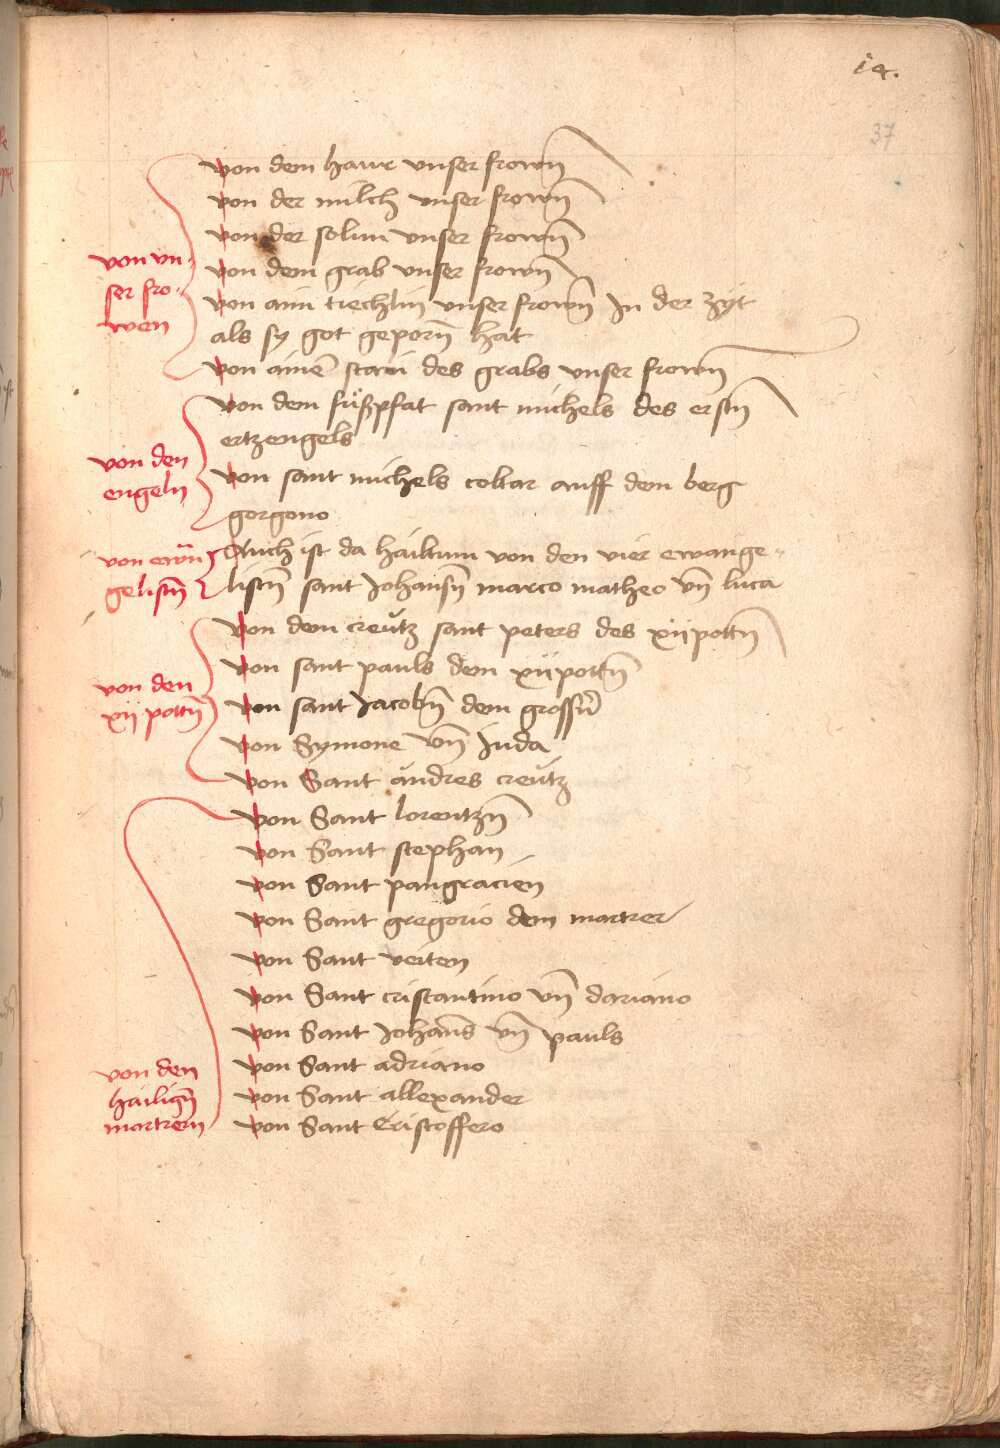 14.
37
von dem haur unser frowñ
von der milch unser frowñ
von der solun unser frowñ
von dem grab unser frowñ
von aim tiechlin unser frowñ In der zyt
als sy got geporñ hat
von ainē stain des grabs unser frowñ
von un-
ser fro-
wen
von dem fůßpfat sant michels des erstñ
ertzengels
von sant michels coltar auff dem berg
gorgono
von den
engeln
Auch ist da hailtum von den vier ewange-
listñ sant Johansñ marco matheo vñ luca
von ewñ
gelistñ
von dem creutz sant peters des xii pottñ
von sant pauls dem xii pottñ
von sant Jacobñ dem grossñ
von Symone vñ Juda
von Sant andres creutz
von den
xij pottñ
von Sant lorentzñ
von Sant stephan
von Sant pangracien
von Sant gregorio dem martrer
von Sant veiten
von Sant cristantino vñ dariano
von Sant Johans vñ pauls
von Sant adriano
von Sant allexander
von Sant Cristoffero
von den
hailigñ
martrern